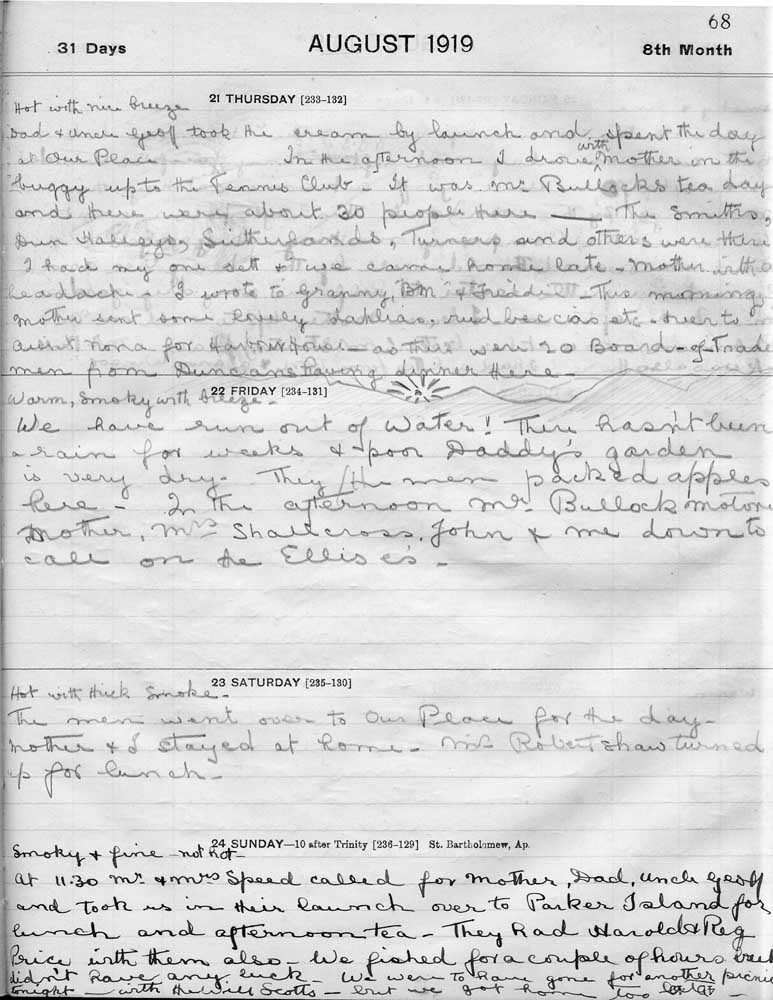 68
31 Days AUGUST 1919 8th Month
21 THURSDAY [233-132]
Hot with nice breeze
Dad & Uncle Geoff took the cream by launch and spent the day
at Our Place In the afternoon I drove with Mother in the
buggy up to the Tennis Club - It was Mr Bullocks tea day
and there were about 30 people there — The Smiths,
Sutherlands, Turners and others were there
I had my one sett & we came home late - Mother with a
headache - I wrote to Granny, BM & Freddie - This morning
Mother sent some lovely dahlias, rudbeccias etc - over to
Aunt Nona for Harbour House - as there were 20 Board-of-Trade
men from Duncans having dinner there -
22 FRIDAY [234-131]
Warm, Smoky with breeze -
We have run out of Water! There hasn't been
a rain for weeks & poor Daddy's garden
is very dry. They / the men packed apples
here - In the afternoon Mr. Bullock motored
Mother, Mrs Shallcross, John & me down to
call on the Ellises -
23 SATURDAY [235-130]
Hot with thick Smoke -
The men went over to Our Place for the day -
Mother & I stayed at home - Mr Robertshaw turned
up for lunch -
24 SUNDAY—10 after Trinity [236-129] St. Bartholomew, Ap.
Smoky & fine - not hot -
At 11.30 Mr. & Mrs Speed called for Mother, Dad, Uncle Geoff
and took us in their launch over to Parker Island for
lunch and afternoon tea - They had Harold & Reg
Price with them also - We fished for a couple of hours but
didn't have any luck - We were to have gone for another picnic
tonight - with the Will Scotts - but we got home too late -